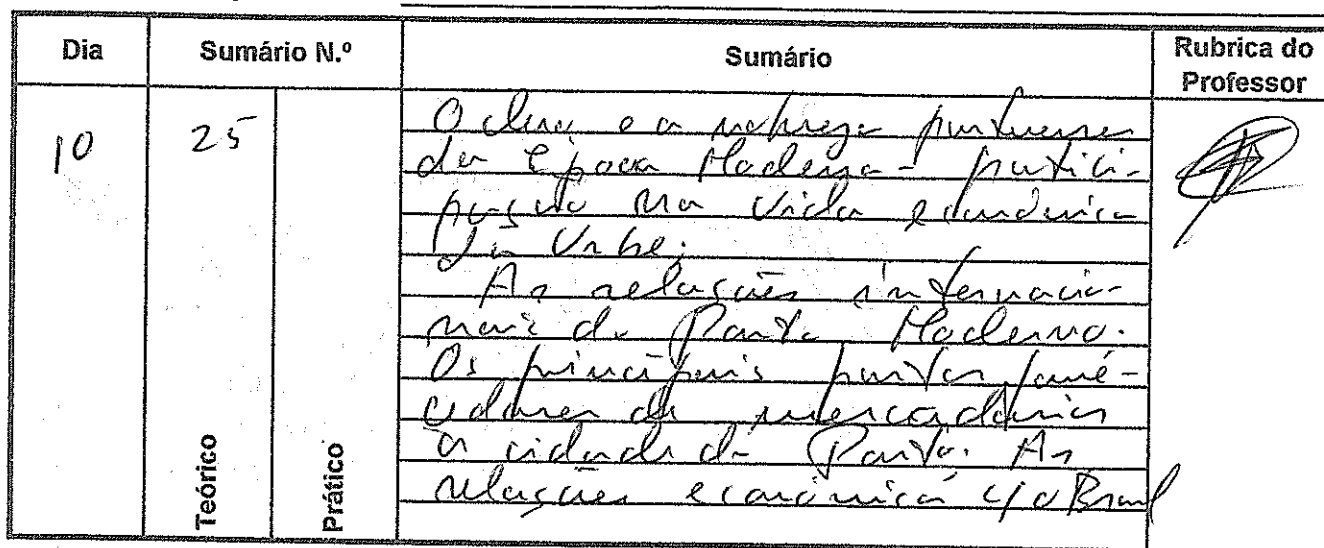 Dia
Sumário N.º
Sumário
Rubrica do
Professor
10
25
O clero e a nobreza portuense
da Época Moderna - partici-
pação na vida económica
da Urbe.
As relações internacio-
nais do Porto Moderno.
Os principais portos forne-
cedores de mercadorias
à cidade do Porto. As
relações económicas c/ o Brasil
Teórico
Prático